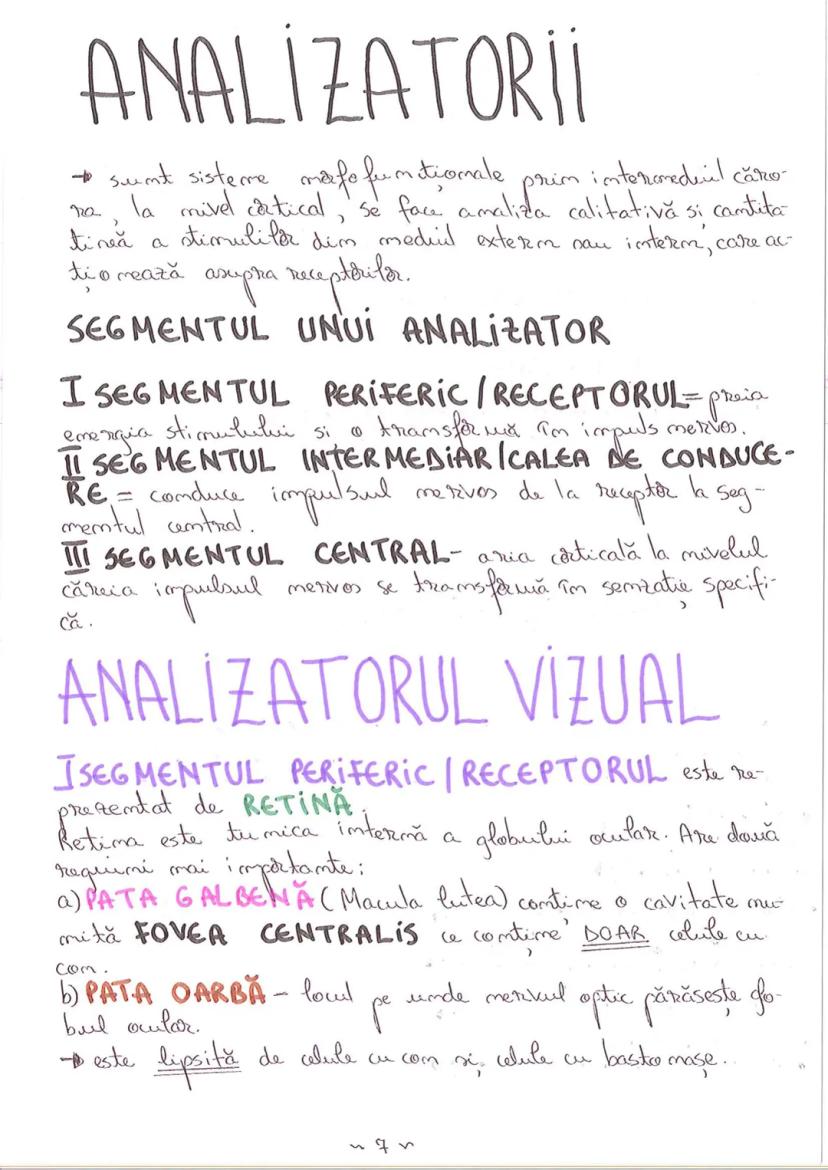 ANALIZATORII
→ sunt sisteme morfofuncționale prin intermediul căro-
ra, la nivel cortical, se face analiza calitativă și cantita-
tivă a stimulilor din mediul extern sau intern, care ac-
ționează asupra receptorilor.
SEGMENTUL UNUI ANALIZATOR
I SEGMENTUL PERIFERIC/RECEPTORUL= preia
energia stimulului si o transformă în impuls nervos.
II SEGMENTUL INTERMEDIAR/CALEA DE CONDUCE-
RE = conduce impulsul nervos de la receptor la seg-
mentul central.
III SEGMENTUL CENTRAL- aria corticală la nivelul
căreia impulsul nervos se transformă în senzație specifi-
că.
ANALIZATORUL VIZUAL
I SEGMENTUL PERIFERIC/RECEPTORUL este re-
prezentat de RETINĂ.
Retina este tunica internă a globului ocular. Are două
regiuni mai importante:
a) PATA GALBENĂ (Macula lutea) contine o cavitate nu-
mită FOVEA CENTRALIS ce contine DOAR celule cu
con.
b) PATA OARBĂ - locul pe unde nervul optic părăsește glo-
bul ocular.
→ este lipsită de celule cu con și celule cu bastonașe.
~ 7 ~